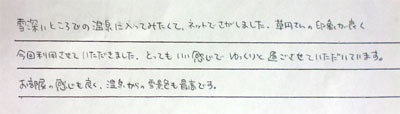 雪深いところでの温泉に入ってみたくて、ネットでさがしました。草円さんの印象が良く
今回利用させていただきました。とってもいい感じでゆっくりと過ごさせていただいています。
お部屋の感じも良く、温泉からの雪景色も最高です。